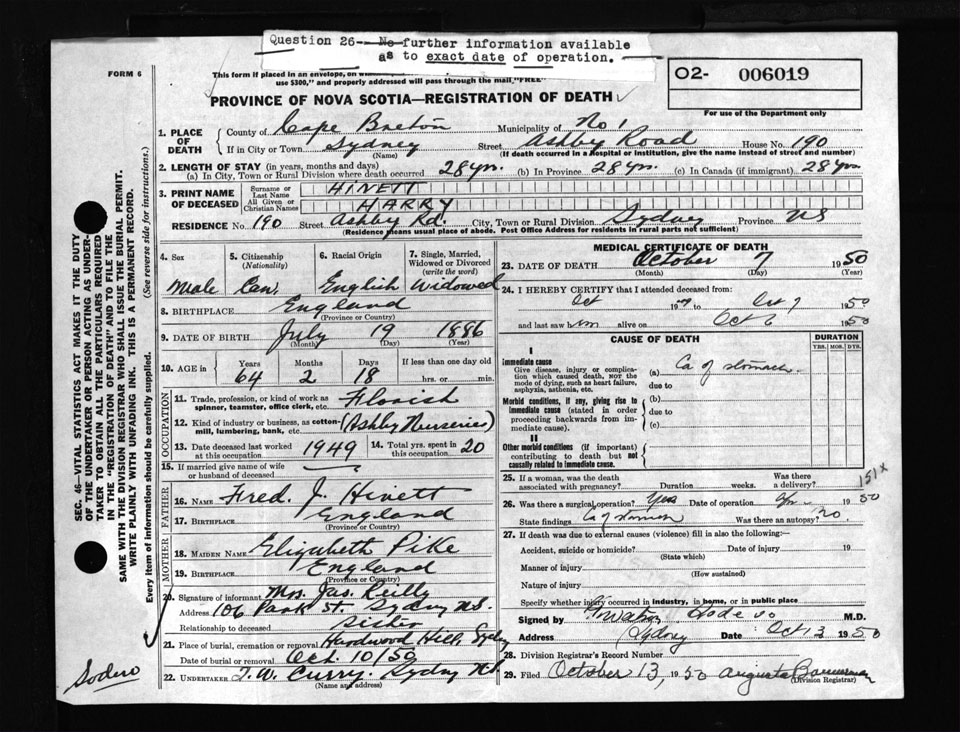 Question 26--No further information available
as to exact date of operation.
FORM 6
This form if placed in an envelope, on
use $300," and properly addressed will pass through the mail, "FREE"
O2- 006019
For use of the Department only
PROVINCE OF NOVA SCOTIA—REGISTRATION OF DEATH
1. PLACE OF DEATH County of Cape Breton Municipality of No 1
If in City or Town Sydney (Name) Street Ashby Road House No. 190
(If death occurred in a Hospital or institution, give the name instead of street and number)
2. LENGTH OF STAY (in years, months and days)
(a) In City, Town or Rural Division where death occurred 28 yrs. (b) In Province 28 yrs. (c) In Canada (if immigrant) 28 yrs
3. PRINT NAME OF DECEASED Surname or Last Name HINETT
All Given or Christian Names HARRY
RESIDENCE No. 190 Street Ashby Rd. City, Town or Rural Division Sydney Province NS
(Residence means usual place of abode. Post Office Address for residents in rural parts not sufficient)
4. Sex 5. Citizenship (Nationality) 6. Racial Origin 7. Single, Married, Widowed or Divorced (write the word)
Male Can. English Widowed
8. BIRTHPLACE England
(Province or Country)
9. DATE OF BIRTH July 19 1886
(Month) (Day) (Year)
10. AGE in Years Months Days If less than one day old
64 2 18 hrs. or min.
OCCUPATION
11. Trade, profession, or kind of work as spinner, teamster, office clerk, etc. Florist
12. Kind of industry or business, as cotton-mill, lumbering, bank, etc. (Ashby Nurseries)
13. Date deceased last worked at this occupation 1949 14. Total yrs. spent in this occupation 20
15. If married give name of wife or husband of deceased
FATHER
16. NAME Fred. J. Hinett
17. BIRTHPLACE England
(Province or Country)
MOTHER
18. MAIDEN NAME Elizabeth Pike
19. BIRTHPLACE England
(Province or Country)
20. Signature of informant Mrs. Jas. Reilly
Address 106 Park St. Sydney N.S.
Relationship to deceased Sister
21. Place of burial, cremation or removal Hardwood Hill, Sydney
Date of burial or removal Oct. 10/50
22. UNDERTAKER T. W. Curry. Sydney N.S.
(Name and address)
MEDICAL CERTIFICATE OF DEATH
23. DATE OF DEATH October 7 1950
(Month) (Day) (Year)
24. I HEREBY CERTIFY that I attended deceased from:
Oct 19 to Oct 7 1950
and last saw him alive on Oct 6 1950
CAUSE OF DEATH DURATION
YRS. MOS. DYS.
I
Immediate cause
Give disease, injury or complication which caused death, NOT the mode of dying, such as heart failure, asphyxia, asthenia, etc.
(a) Ca of stomach.
due to
Morbid conditions, if any, giving rise to immediate cause (stated in order proceeding backwards from immediate cause).
(b)
due to
(c)
II
Other morbid conditions (if important) contributing to death but not causally related to immediate cause.
25. If a woman, was the death associated with pregnancy? Duration weeks. Was there a delivery?
151x
26. Was there a surgical operation? Yes Date of operation 1950
State findings Ca of stomach Was there an autopsy? No.
27. If death was due to external causes (violence) fill in also the following:—
Accident, suicide or homicide? Date of injury 19
(State which)
Manner of injury
(How sustained)
Nature of injury
Specify whether injury occurred in industry, in home, or in public place
Signed by M.D.
Address Sydney Date Oct 13 1950
28. Division Registrar's Record Number
29. Filed October 13, 1950 Augusta Bannerman
(Division Registrar)
SEC. 46—VITAL STATISTICS ACT MAKES IT THE DUTY
OF THE UNDERTAKER OR PERSON ACTING AS UNDER-
TAKER TO OBTAIN ALL THE PARTICULARS REQUIRED
IN THE "REGISTRATION OF DEATH" AND TO FILE THE
SAME WITH THE DIVISION REGISTRAR WHO SHALL ISSUE THE BURIAL PERMIT.
WRITE PLAINLY WITH UNFADING INK. THIS IS A PERMANENT RECORD.
Every item of information should be carefully supplied. (See reverse side for instructions.)
Sodero